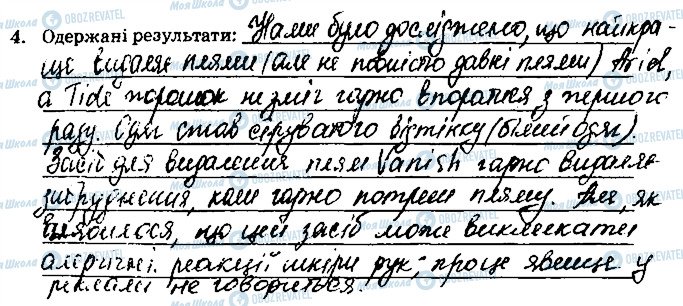 4. Одержані результати: Нами було досліджено, що найкра-
ще видаляє плями (але не повністю давні плями) Ariel,
а Tide порошок не зміг гарно впоратися з першого
разу. Одяг став сіруватого відтінку (білий одяг).
Засіб для видалення плям Vanish гарно видаляє
забруднення, коли гарно потреш пляму. Але, як
виявилося, що цей засіб може викликати
алергічні реакції шкіри рук; проце явище у
рекламі не говориться.